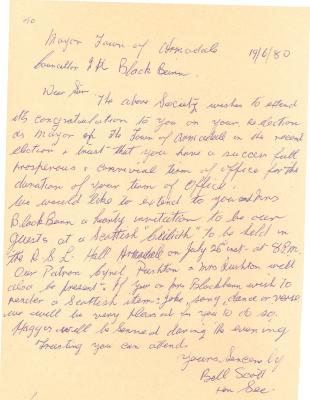 Mayor Town of Armadale 19/6/80
Councillor I K Black Burn.
Dear Sir
The above Society wishes to extend
its congratulation to you on your Re election
as Mayor of the Town of Armadale in the recent
election & trust that you have a success full
prosperous & convivial Term of office for the
duration of your term of office.
We would like to extend to you and Mrs
BlackBurn a hearty invitation to be our
guests at a Scottish "Ceilidh" to be held in
the R.S.L. Hall Armadale on July 26 inst. at 8 P.M.
Our Patron Cyril Rushton & Mrs Rushton will
also be present. If you or Mrs Blackburn wish to
render a Scottish item: joke, song, dance or verse
we will be very pleased in you to do so.
Haggis will be served during the evening.
Trusting you can attend.
Yours Sincerely
Bill Scott
Hon Sec.